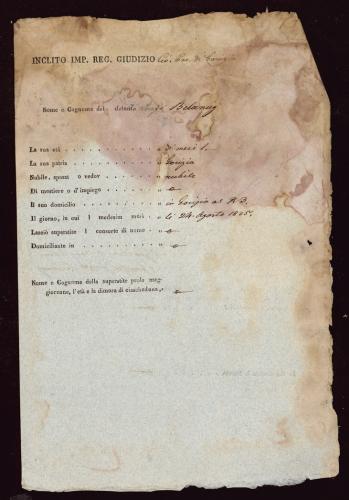 INCLITO IMP. REG. GIUDIZIO
Nome e Cognome del defunto
La sua età . . . . . . . . . . . . „ di mesi 1.
La sua patria . . . . . . . . . . „ Gorizia
Nubile, sposo o vedov . . . . . . . „ nubile
Di mestiere o d'impiego . . . . . . . „
Il suo domicilio . . . . . . . . . „ in Gorizia al N 3.
Il giorno, in cui l medesim morì . . . . „ li 24. Agosto 1825.
Lasciò superstite l consorte di nome . . . „
Domiciliante in . . . . . . . . . „
Nome e Cognome della superstite prole mag-
giorenne, l'età e la dimora di ciascheduna. „